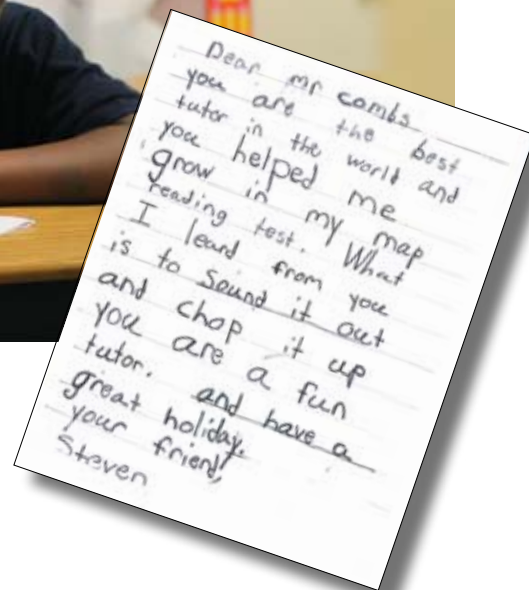 Dear mr combs
you are the best
tutor in the world and
you helped me
grow in my map
reading test. What
I leard from you
is to sound it out
and chop it up
you are a fun
tutor. and have a
great holiday.
your friend,
Steven